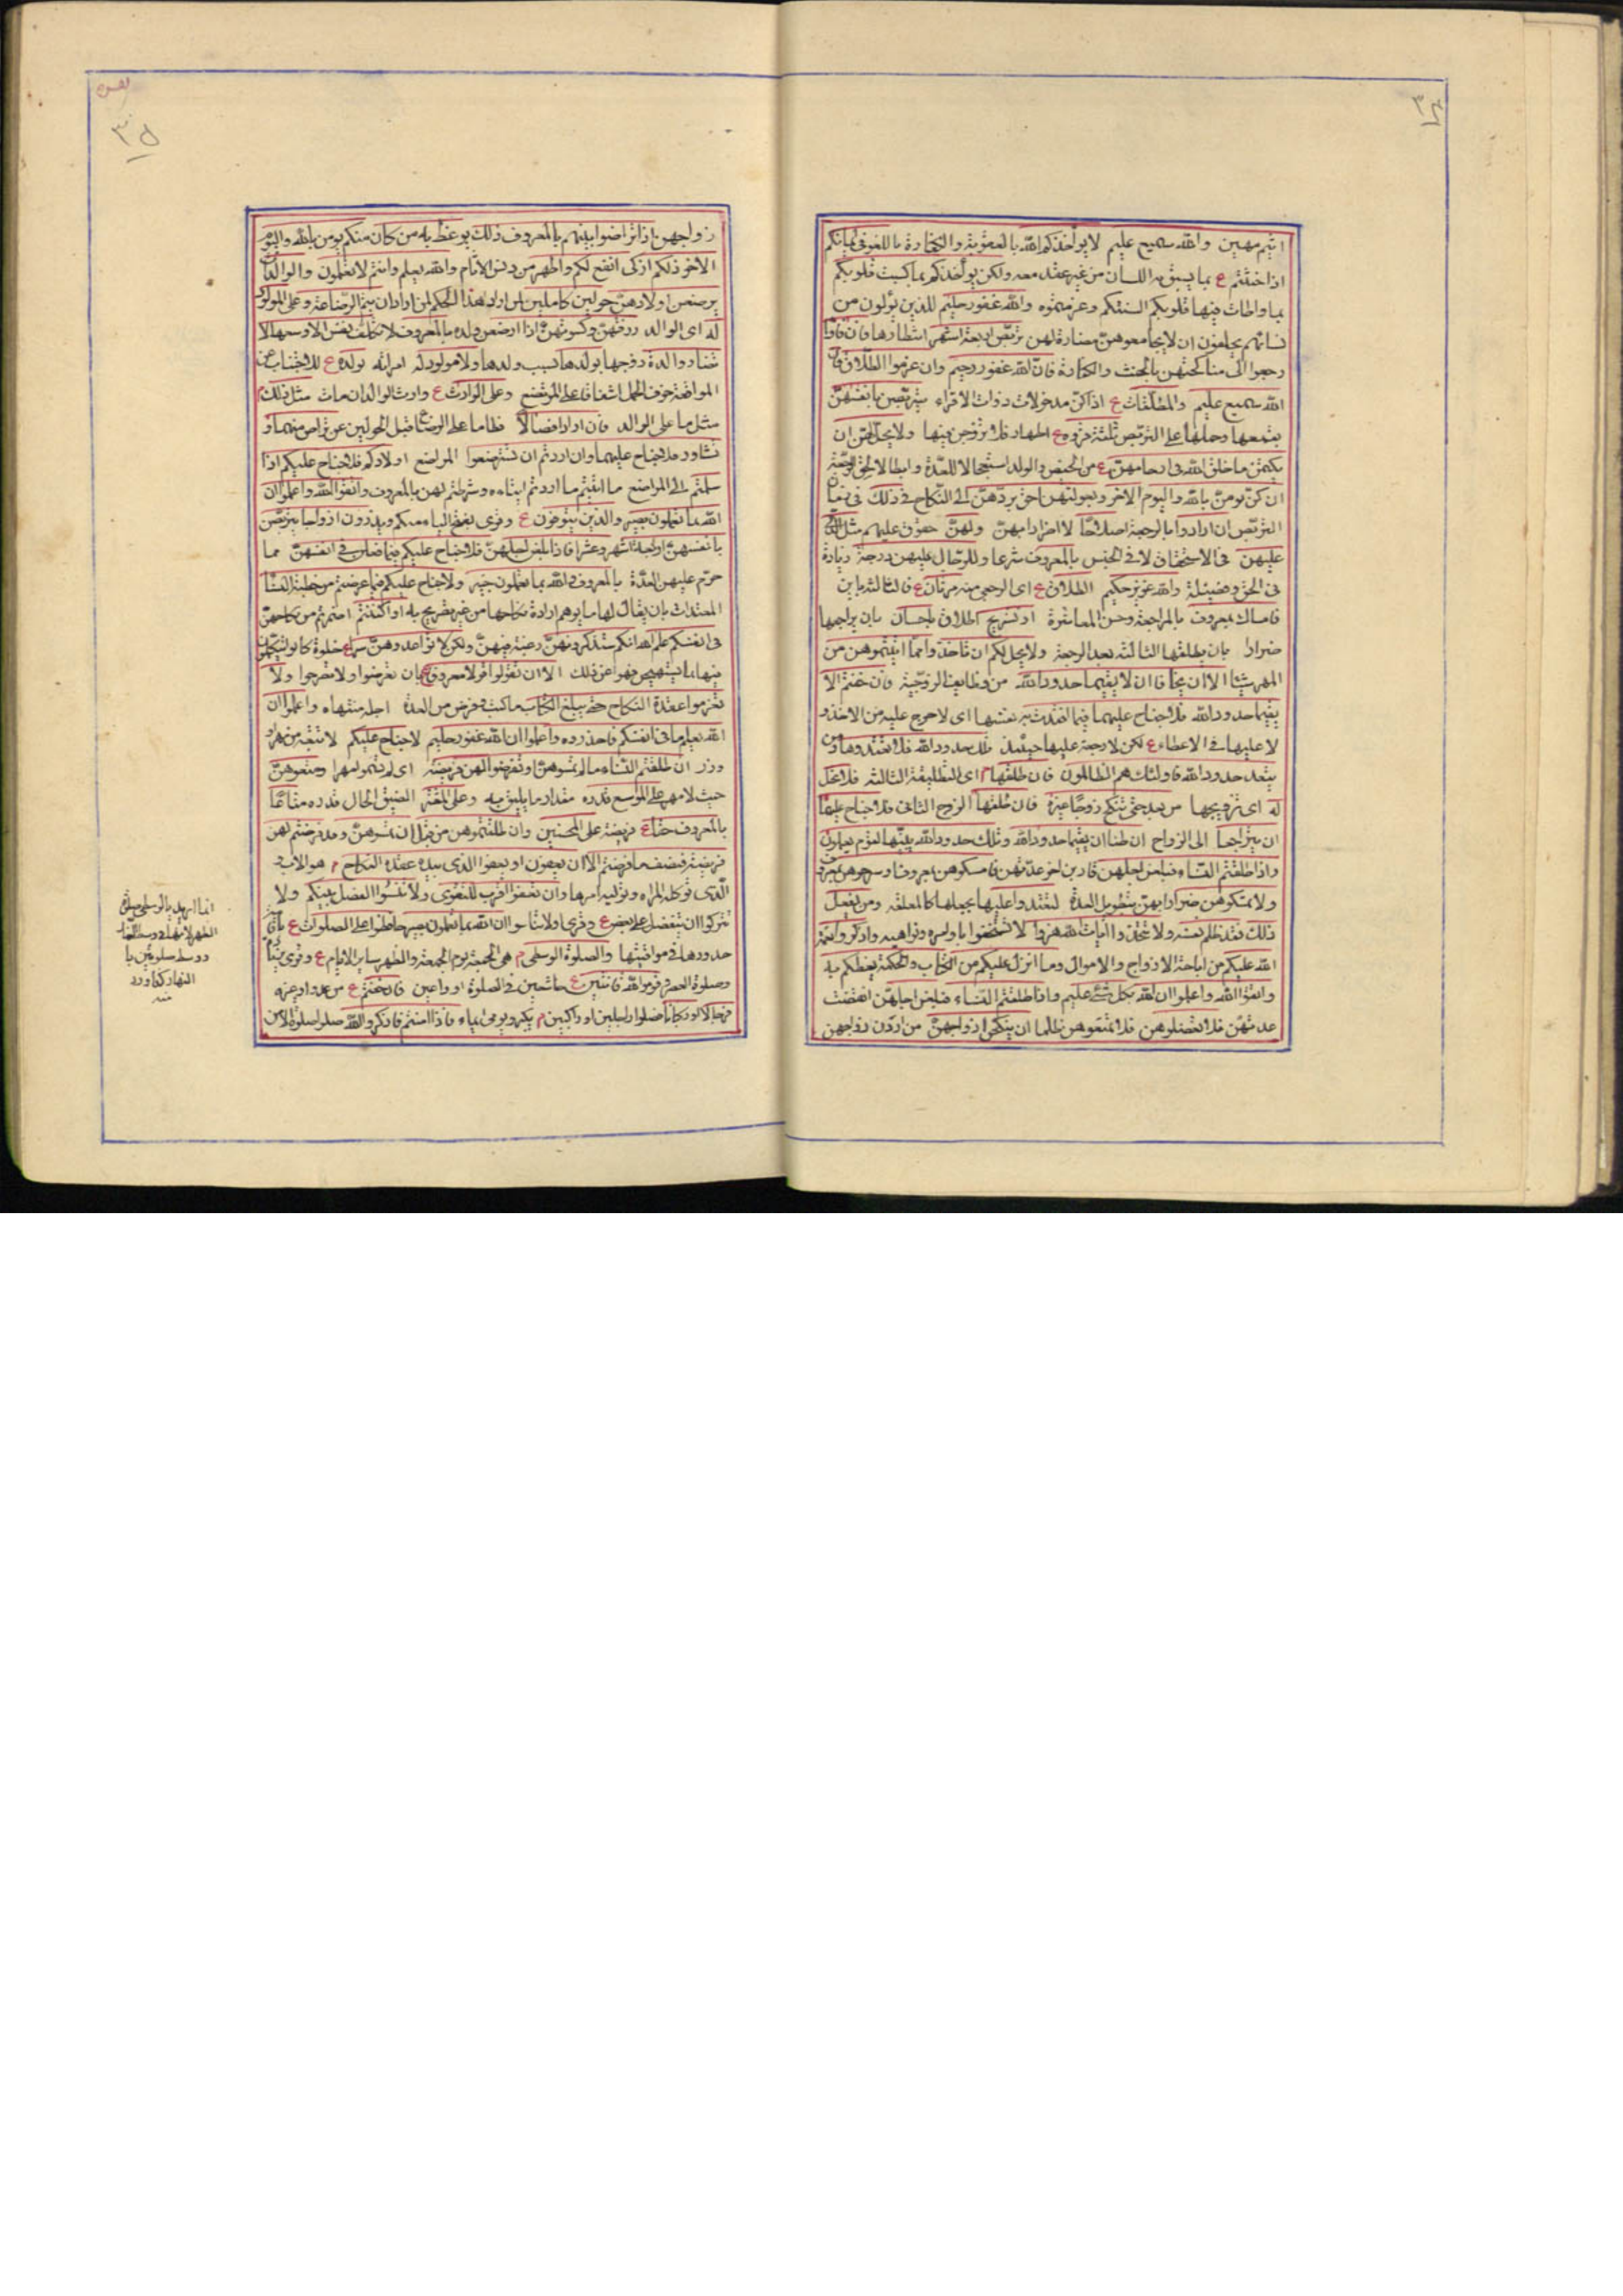 ٣٤
اثيم مهين والله سميع عليم لا يؤاخذكم الله بالعقوبة والكفارة باللغو في ايمانكم
اذا حنثتم ع بما يسبق به اللسان من غير عقد معه ولكن يؤاخذكم بما كسبت قلوبكم
بما واطات فيها قلوبكم السنتكم وعزمتموه والله غفور حليم للذين يؤلون من
نسائهم يحلفون ان لا يجامعوهن مضارة لهن تربص اربعة اشهر انتظارها فان فاؤا
رجعوا الى مناكحتهن بالحنث والكفارة فان الله غفور رحيم وان عزموا الطلاق فان
الله سميع عليم والمطلقات ع اذا كن مدخولات ذوات الاقراء يتربصن بانفسهن
بقمعها وحملها على التربص ثلثة قروء ع اطهار فلا تزوجن فيها ولا يحل لهن ان
يكتمن ما خلق الله في ارحامهن ع من الحيض والولد استعجالا للعدة وابطالا لحق الرجعة
ان كن يؤمن بالله واليوم الاخر وبعولتهن احق بردهن الى النكاح في ذلك في زمان
التربص ان ارادوا بالرجعة اصلاحا لا اضرارا بهن ولهن حقوق عليهم مثل الذي
عليهن في الاستحقاق لا في الجنس بالمعروف شرعا وللرجال عليهن درجة زيادة
في الحق وفضيلة والله عزيز حكيم الطلاق ع اي الرجعي منه مرتان ع فالثالثة باين
فامساك بمعروف بالمراجعة وحسن المعاشرة او تسريح اطلاق باحسان بان يراجعها
ضرارا بان يطلقها الثالثة بعد الرجعة ولا يحل لكم ان تاخذوا مما اتيتموهن من
المهر شيئا الا ان يخافا ان لا يقيما حدود الله من وظايف الزوجية فان خفتم الا
يقيما حدود الله فلا جناح عليهما فيما افتدت به نفسها اي لا حرج عليه في الاخذ و
لا عليها في الاعطاء ع لكن لا رجعة عليها حينئذ تلك حدود الله فلا تعتدوها ومن
يتعد حدود الله فاولئك هم الظالمون فان طلقها م اي التطليقة الثالثة فلا تحل
له اي تزويجها من بعد حتى تنكح زوجا غيره فان طلقها الزوج الثاني فلا جناح عليهما
ان يتراجعا الى الزواج ان ظنا ان يقيما حدود الله وتلك حدود الله يبينها لقوم يعلمون
واذا طلقتم النساء فبلغن اجلهن قاربن اخر عدتهن فامسكوهن بمعروف او سرحوهن بمعروف
ولا تمسكوهن ضرارا بهن بتطويل العدة لتعتدوا عليها بجعلها كالمعلقة ومن يفعل
ذلك فقد ظلم نفسه ولا تتخذوا ايات الله هزوا لا تستخفوا باوامره ونواهيه واذكروا نعمة
الله عليكم من اباحة الازواج والاموال وما انزل عليكم من الكتاب والحكمة يعظكم به
واتقوا الله واعلموا ان الله بكل شيء عليم واذا طلقتم النساء فبلغن اجلهن انقضت
عدتهن فلا تعضلوهن فلا تمنعوهن ظلما ان ينكحن ازواجهن من اردن زواجهن
٣٥
زواجهن اذا تراضوا بينهم بالمعروف ذلك يوعظ به من كان منكم يؤمن بالله واليوم
الاخر ذلكم ازكى انفع لكم واطهر من دنس الاثام والله يعلم وانتم لا تعلمون والوالدات
يرضعن اولادهن حولين كاملين لمن اراد هذا الحكم لمن اراد ان يتم الرضاعة وعلى المولود
له اي الوالد رزقهن وكسوتهن اذا ارضعن ولده بالمعروف لا تكلف نفس الا وسعها لا
تضار والدة زوجها بولدها بسبب ولدها ولا مولود له امرأته بولده ع للاجتناب عن
المواقعة خوف الحمل اشفاقا على المرتضع وعلى الوارث ع وارث الوالد ان مات مثل ذلك م
مثل ما على الوالد فان ارادا فصالا فطاما على الرضاع قبل الحولين عن تراض منهما و
تشاور فلا جناح عليهما وان اردتم ان تسترضعوا المراضع اولادكم فلا جناح عليكم اذا
سلمتم الى المراضع ما اتيتم ما اردتم ايتاءه وشرطتم لهن بالمعروف واتقوا الله واعلموا ان
الله بما تعملون بصير والذين يتوفون ع وقرئ بفتح الياء منكم ويذرون ازواجا يتربصن
بانفسهن اربعة اشهر وعشرا فاذا بلغن اجلهن فلا جناح عليكم فيما فعلن في انفسهن مما
حرم عليهن للعدة بالمعروف والله بما تعملون خبير ولا جناح عليكم فيما عرضتم من خطبة النساء
المعتدات بان يقال لها ما يوهم ارادة نكاحها من غير تصريح به او اكننتم اضمرتم من نكاحهن
في انفسكم علم الله انكم ستذكرونهن رغبة فيهن ولكن لا تواعدوهن سرا ع خلوة كانوا يتكلمون
فيها بما يستهجن فنهوا عن ذلك الا ان تقولوا قولا معروفا ع بان تعرضوا ولا تصرحوا ولا
تعزموا عقدة النكاح حتى يبلغ الكتاب ما كتب وفرض من العدة اجله منتهاه واعلموا ان
الله يعلم ما في انفسكم فاحذروه واعلموا ان الله غفور حليم لا جناح عليكم لا تبعة من مهر او
وزر ان طلقتم النساء ما لم تمسوهن او تفرضوا لهن فريضة اي لم تسموا مهرا ومتعوهن
حيث لا مهر على الموسع قدره مقدار ما يليق به وعلى المقتر الضيق الحال قدره متاعا
بالمعروف حقا ع فريضة على المحسنين وان طلقتموهن من قبل ان تمسوهن وقد فرضتم لهن
فريضة فنصف ما فرضتم الا ان يعفون او يعفو الذي بيده عقدة النكاح م هو الاب و
الذي توكله المراة وتوليه امرها وان تعفوا اقرب للتقوى ولا تنسوا الفضل بينكم ولا
تتركوا ان يتفضل بعض على بعض ع وقرئ ولا تناسوا ان الله بما تعملون بصير حافظوا على الصلوات ع
حدودها في مواقيتها والصلوة الوسطى م هي الجمعة يوم الجمعة والظهر ساير الايام ع وقرئ
وصلوة العصر وقوموا لله قانتين ع خاشعين في الصلوة او داعين فان خفتم ع من عدو او غيره
فرجالا او ركبانا فصلوا راجلين او راكبين م يكبر ويومى ايماء فاذا امنتم فاذكروا الله صلوا صلوة الامن
انما اريد بالوسطى صلوة
الظهر لانها في وسط النهار
ووسط صلوتين با
النهار كما ورد
منه